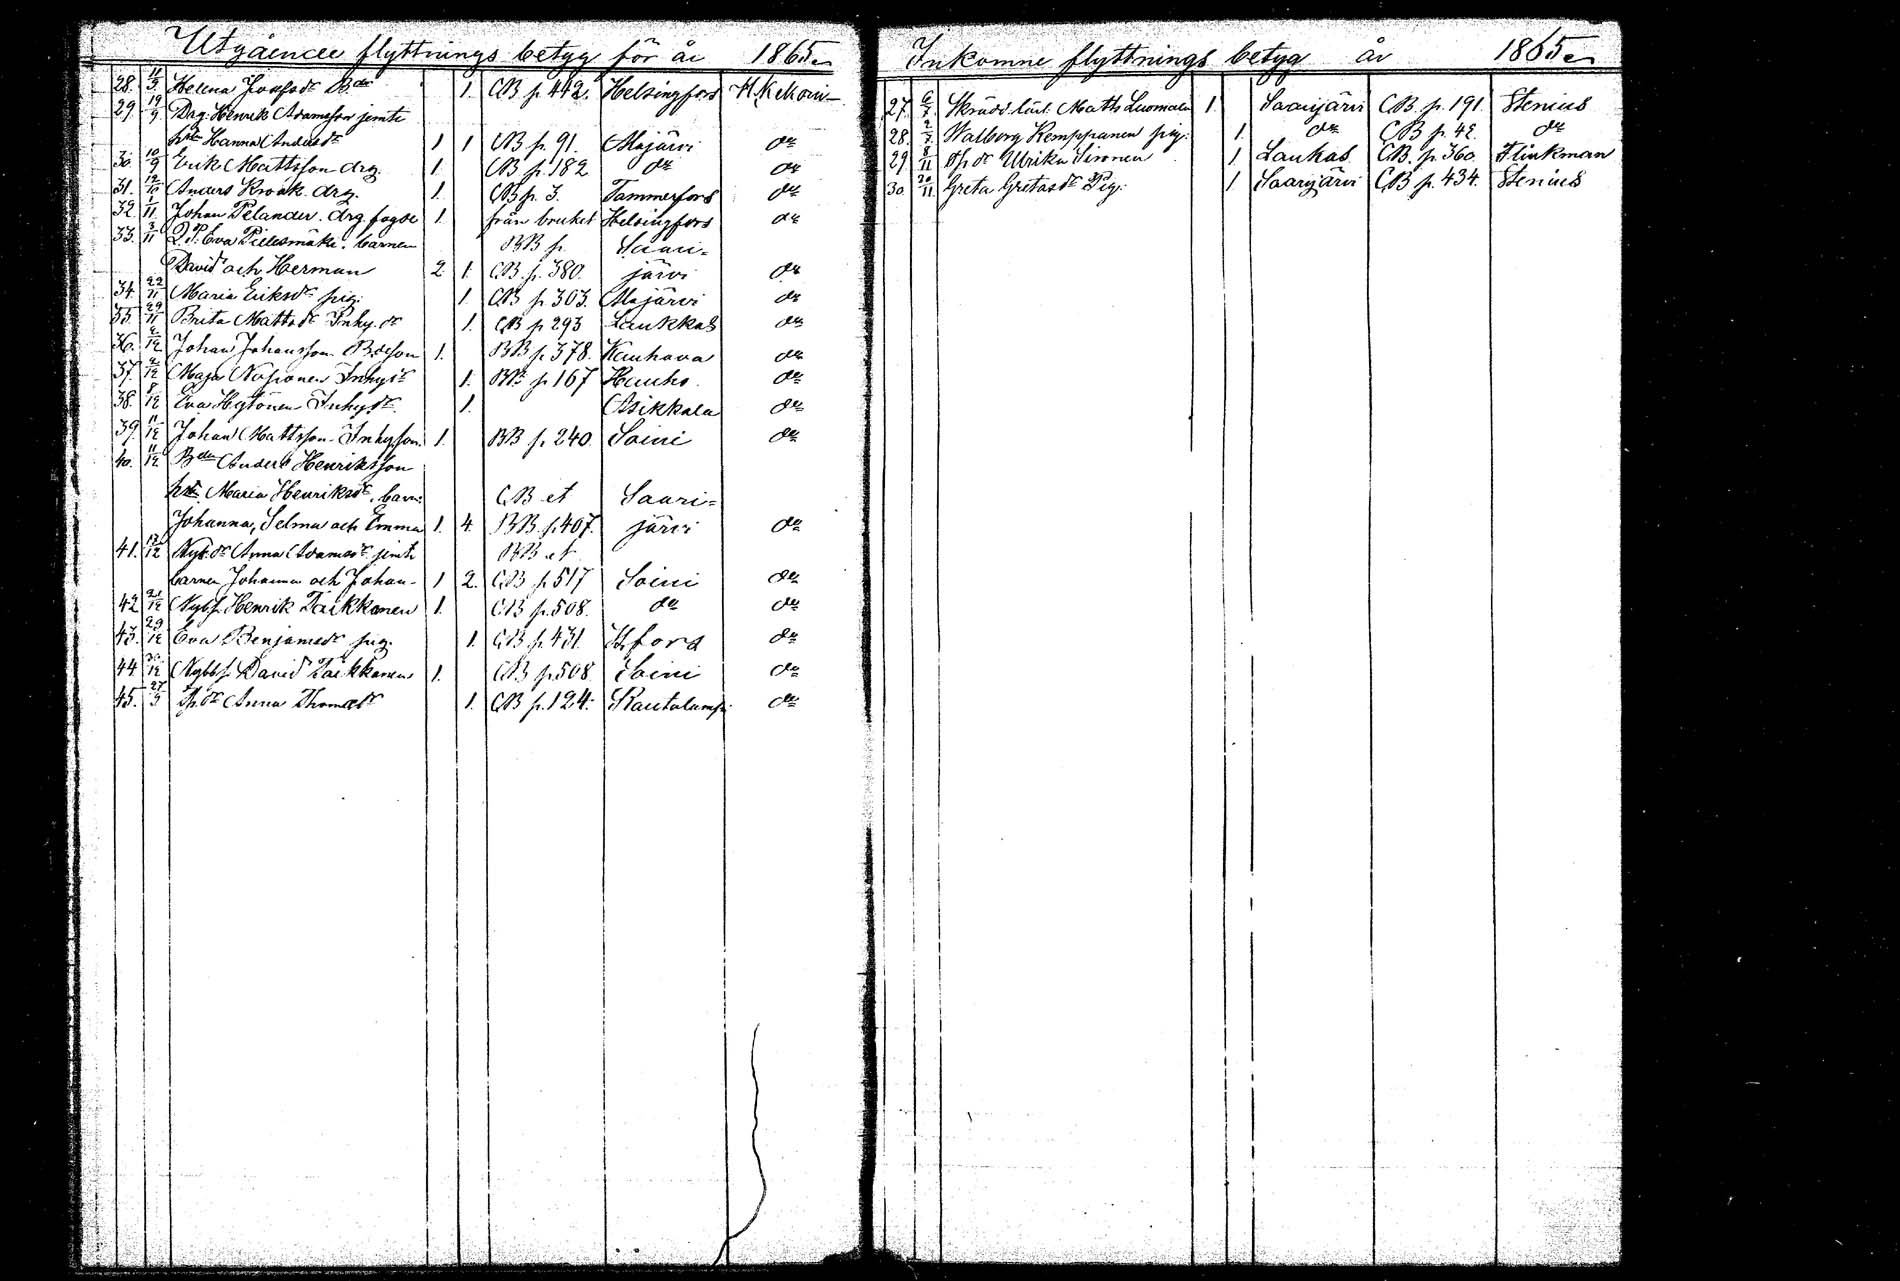 Utgående flyttnings betyg för år 1865
28. 11/9 Helena Josefsdr Bdr 1. CB p. 442. Helsingfors H. Kekoni
29. 19/9 Drg. Henrik Adamsson jemte
hru Hanna Andersdr 1 1 CB p. 91. Alajärvi do
30. 10/9 Erik Mattsson drg. 1. CB p. 182 do do
31. 12/10 Anders Kroak drg. 1. CB p. 3. Tammerfors do
32. 1/11 Johan Pelander. drg. fogde 1. från bruket Helsingfors do
33. 3/11 Q. P. Eva Pielesmäki. barnen BB p Saari-
David och Herman 2. 1. CB. p. 380. järvi do
34. 22/11 Maria Eriksdr pig. 1. CB p 303. Alajärvi do
35. 29/11 Brita Mattsdr Inhy. dr 1. CB p 293 Laukkas do
36. 2/12 Johan Johansson Bdeson 1. BB p. 378. Kauhava do
37. 2/12 Maja Inhysdr 1. BB p 167 Hauho. do
38. 8/12 Eva Hytönen Inhysdr. 1. Asikkala do
39. 11/12 Johan Mattsson Inhyson 1. BB p. 240 Soini do
40. 11/12 Bden Anders Henriksson
hru Maria Henriksdr, barn: CB et Saari-
Johanna, Selma och Emma 1. 4. BB. p. 407. järvi do
41. 13/12 Nyb. dr Anna Adamsdr jemte BB et
barnen Johanna och Johan 1 2. CB p. 517 Soini do
42 21/12 Nybs. Henrik Taikkonen 1. CB p. 508. do do
43. 29/12 Eva Benjamsdr pig. 1. CB p. 431. H.fors do
44. 30/12 Nybs. David Taikkonen 1. CB p. 508 Soini do
45. 27/9 Tp. dr Anna Thomasdr 1. CB p. 124. Rautalampi do
Inkomne flyttnings betyg år 1865
27. 6/7 Skrädd. lärl. Matts Luomala 1. Saarijärvi CB. p. 191. Stenius
28. 2/7 Walborg Kemppanen pig. 1. do CB p. 42. do
29. 8/11 dr Ulrika Sironen 1. Laukas. CB. p. 360. Flinkman
30 20/11 Greta Gretasdr Pig. 1 Saarijärvi CB p. 434. Stenius